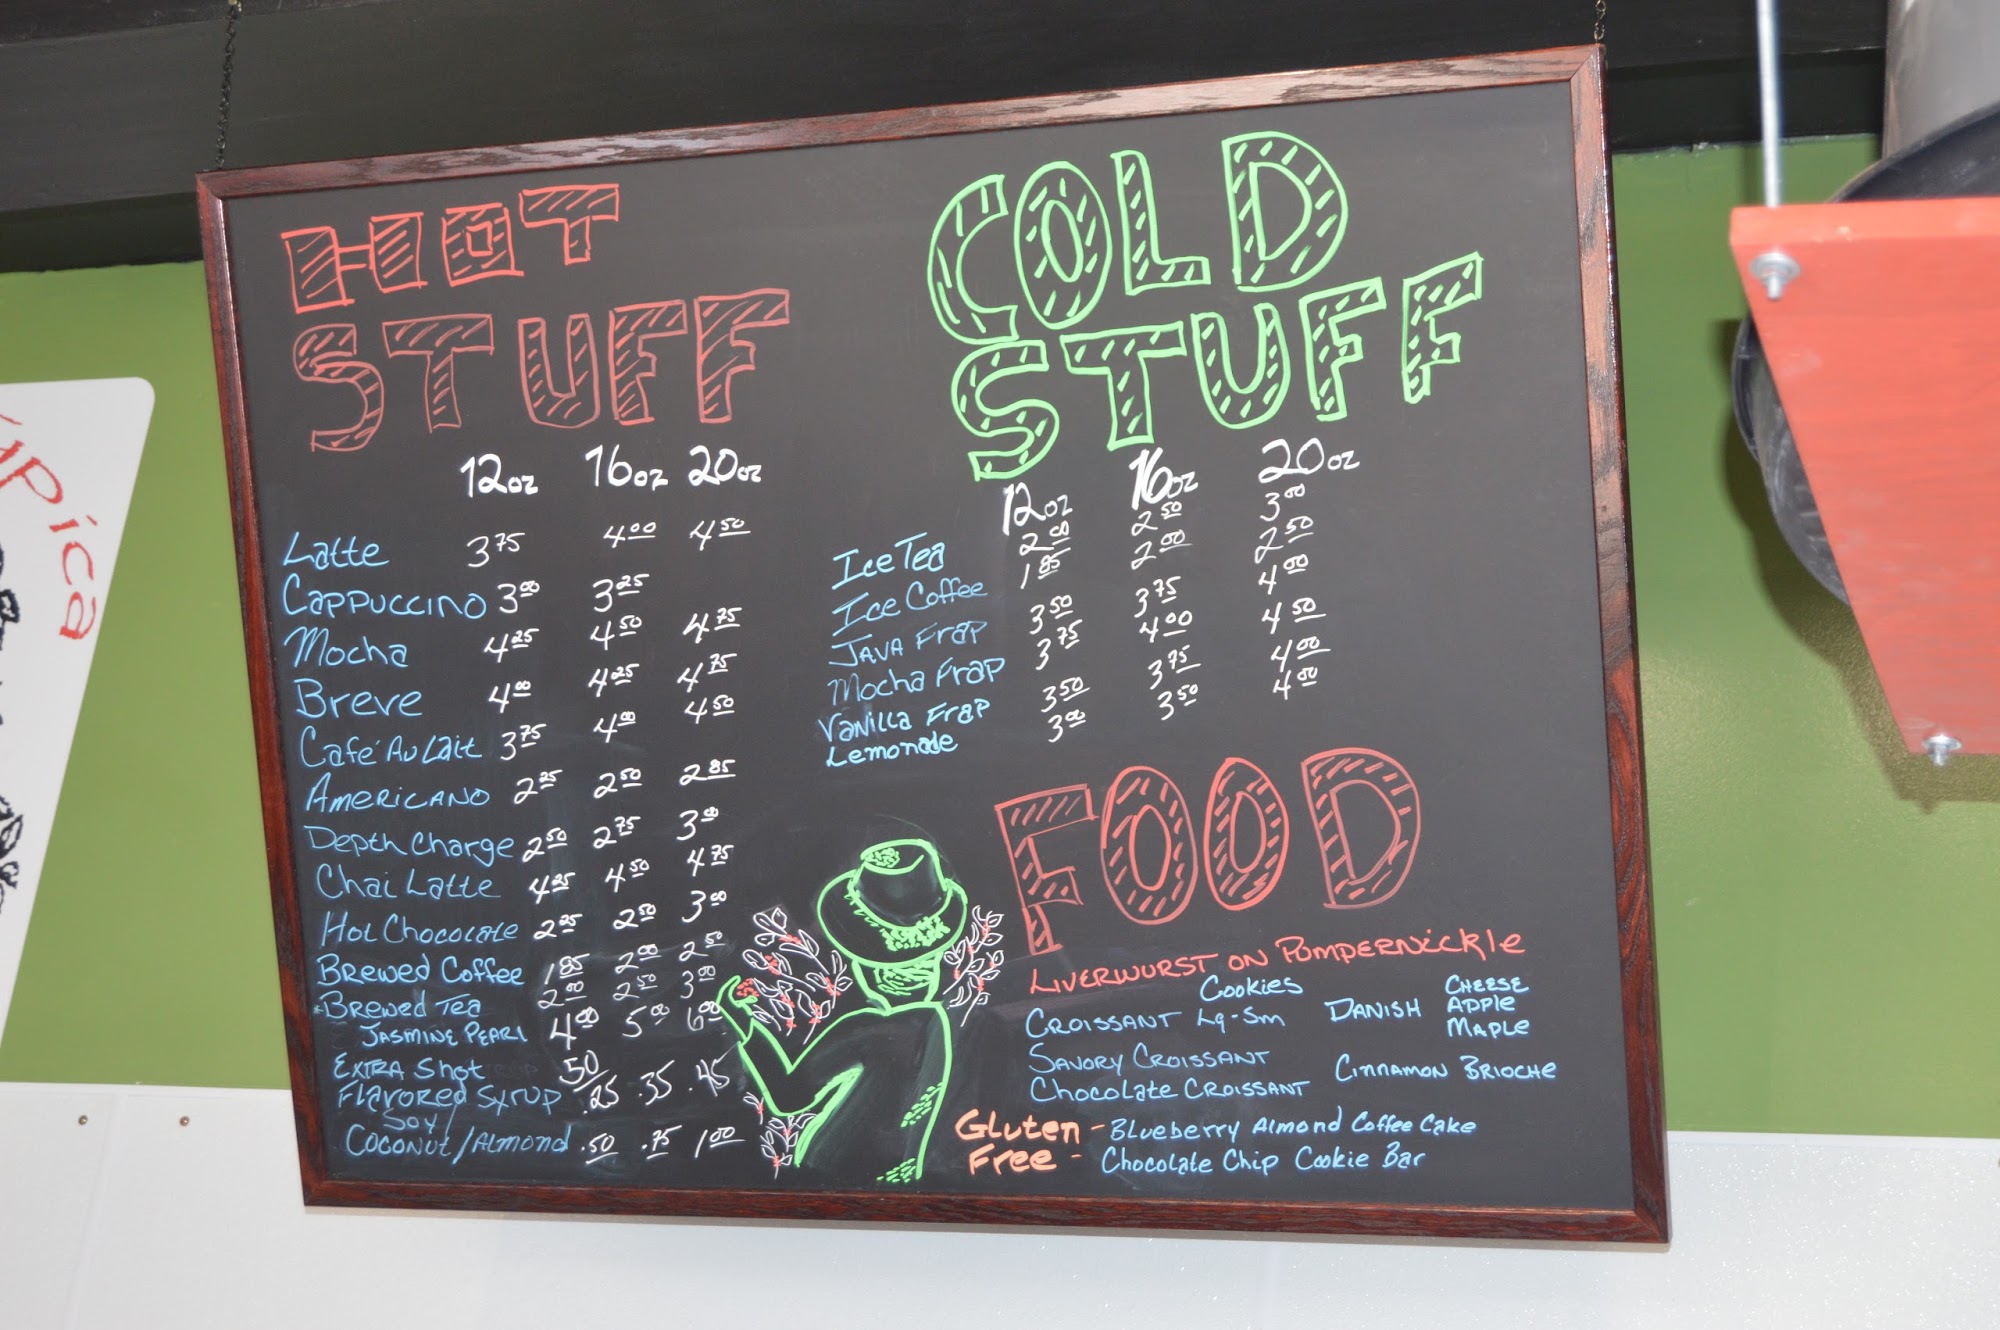 ápica
HOT
STUFF
12oz 16oz 20oz
Latte 3.75 4.00 4.50
Cappuccino 3.00 3.25
Mocha 4.25 4.50 4.75
Breve 4.00 4.25 4.75
Café Au Lait 3.75 4.00 4.50
Americano 2.25 2.50 2.85
Depth Charge 2.50 2.75 3.00
Chai Latte 4.25 4.50 4.75
Hot Chocolate 2.25 2.50 3.00
Brewed Coffee 1.85 2.00 2.50
*Brewed Tea 2.00 2.50 3.00
Jasmine Pearl 4.00 5.00 6.00
Extra Shot 50
Flavored Syrup .25 .35 .45
Soy/
Coconut/Almond .50 .75 1.00
COLD
STUFF
12oz 16oz 20oz
Ice Tea 2.00 2.50 3.00
Ice Coffee 1.85 2.00 2.50
Java Frap 3.50 3.75 4.00
Mocha Frap 3.75 4.00 4.50
Vanilla Frap 3.50 3.75 4.00
Lemonade 3.00 3.50 4.00
FOOD
Liverwurst on Pumpernickle
Cookies
Lg-Sm
Croissant
Danish Cheese
Apple
Maple
Savory Croissant
Cinnamon Brioche
Chocolate Croissant
Gluten - Blueberry Almond Coffee Cake
Free - Chocolate Chip Cookie Bar